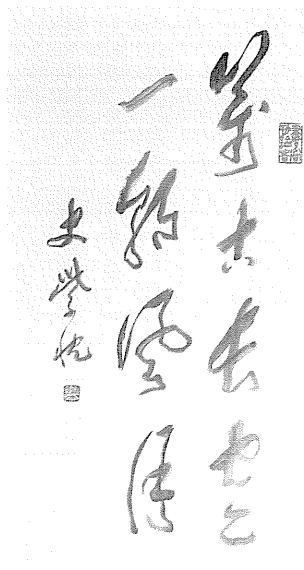 萬古長空
一朝風月
史紫忱